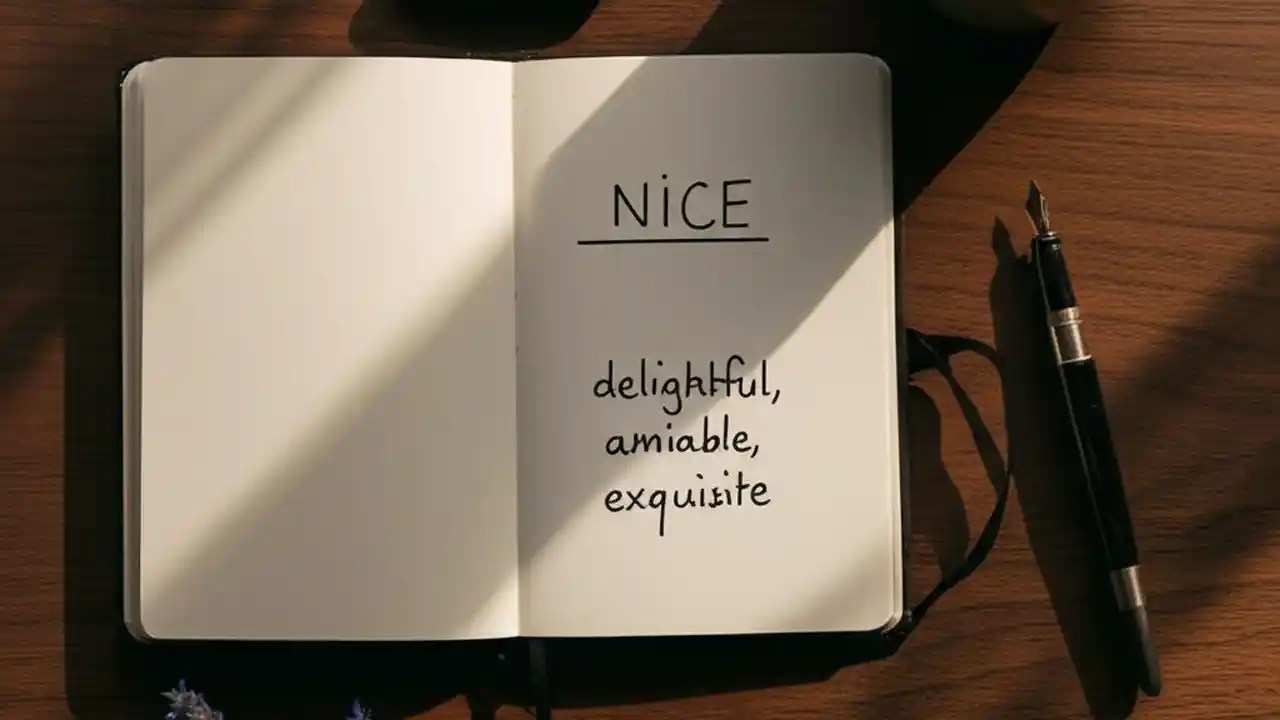 NiCE
delightful,
amiable,
exquisite